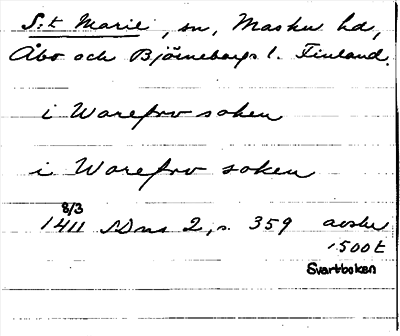 S:t Marie, sn, Masku hd,
Åbo och Björneborgs l. Finland.
i Warefrv soken
i Warefrv soken
8/3
1411 SDns 2, s. 359 avskr
1500t
Svartboken